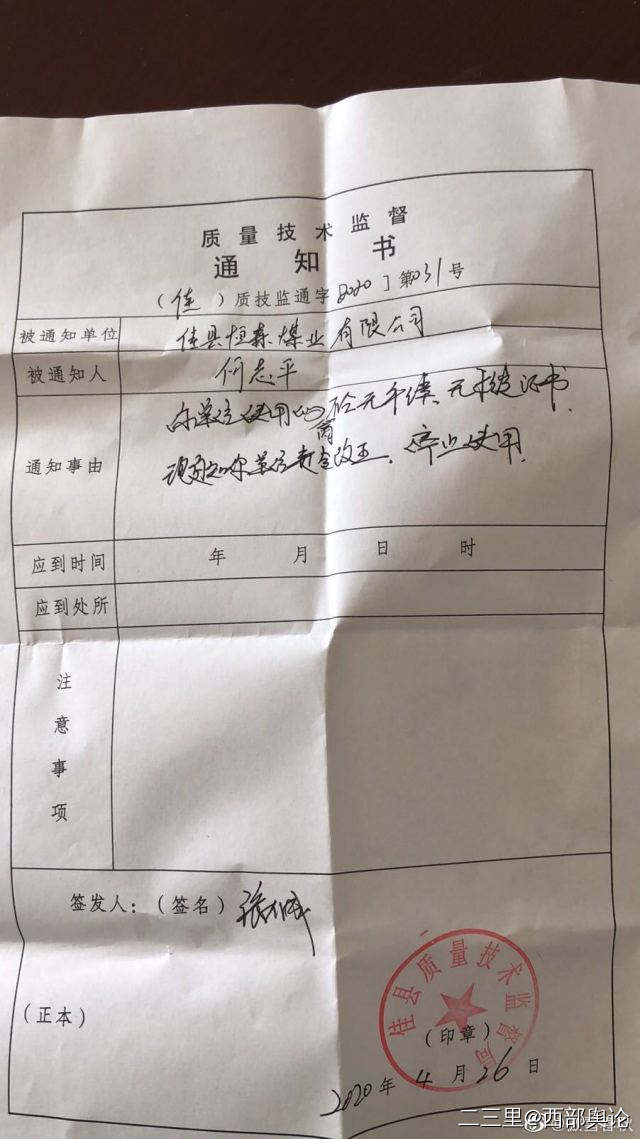 质量技术监督
通知书
(佳)质技监通字2020]第031号
被通知单位 佳县恒森煤业有限公司
被通知人 何志平
通知事由 你单位使用的 无手续、无 证书、
现通知你单位 改正、停止使用
应到时间 年 月 日 时
应到处所
注意事项
签发人：(签名) 张
佳县质量技术监督局
(正本)
(印章)
2020年4月26日
二三里@西部舆论